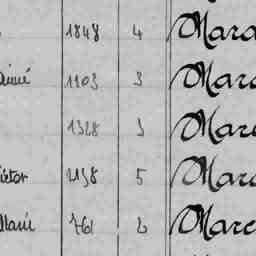 1848 4 Mara
Aimé 1103 3 Mara
1328 3 Mare
Victor 2138 5 Mara
Marie 761 2 Marc